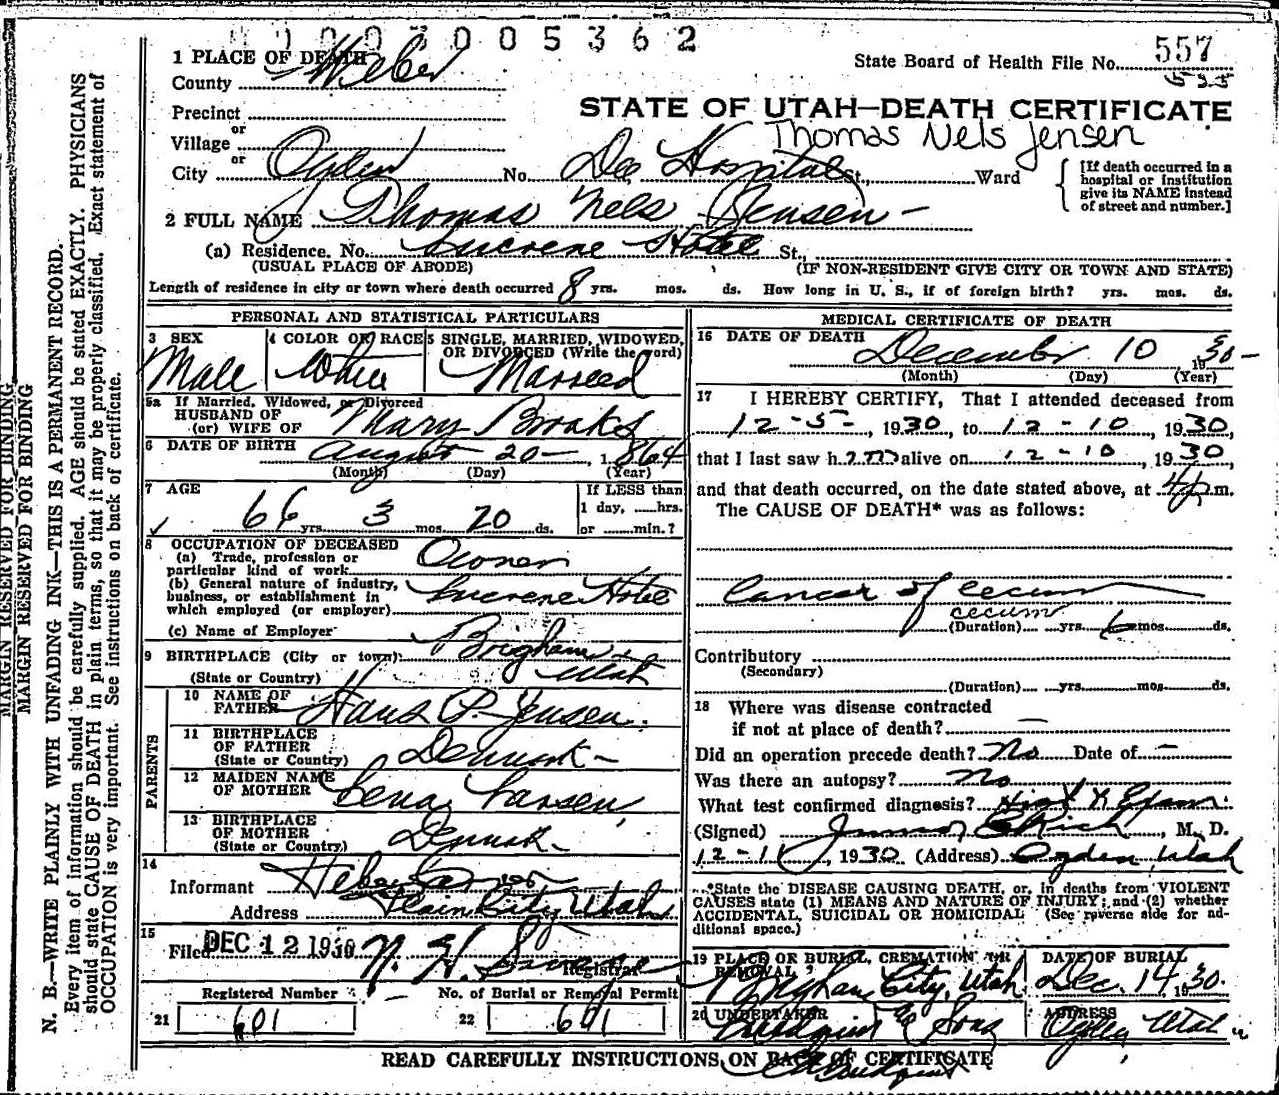 0003005362
1 PLACE OF DEATH
County Weber
State Board of Health File No. 557
535
Precinct
STATE OF UTAH—DEATH CERTIFICATE
or
Village
Thomas Nels Jensen
or
City Ogden No. Dee Hospital St., Ward
[If death occurred in a hospital or institution give its NAME instead of street and number.]
2 FULL NAME Thomas Nels Jensen
(a) Residence. No. Lucrene Hotel St.,
(USUAL PLACE OF ABODE) (IF NON-RESIDENT GIVE CITY OR TOWN AND STATE)
Length of residence in city or town where death occurred 8 yrs. mos. ds. How long in U. S., if of foreign birth? yrs. mos. ds.
PERSONAL AND STATISTICAL PARTICULARS
3 SEX Male
4 COLOR OR RACE White
5 SINGLE, MARRIED, WIDOWED, OR DIVORCED (Write the word) Married
5a If Married, Widowed, or Divorced
HUSBAND OF
(or) WIFE OF Mary Brooks
6 DATE OF BIRTH August 20 – 1864
(Month) (Day) (Year)
7 AGE
66 yrs. 3 mos. 20 ds.
If LESS than
1 day, hrs.
or min.?
8 OCCUPATION OF DECEASED
(a) Trade, profession or
particular kind of work Owner
(b) General nature of industry,
business, or establishment in
which employed (or employer) Lucrene Hotel
(c) Name of Employer
9 BIRTHPLACE (City or town) Brigham
(State or Country) Utah
PARENTS
10 NAME OF
FATHER Hans P. Jensen
11 BIRTHPLACE
OF FATHER
(State or Country) Denmark –
12 MAIDEN NAME
OF MOTHER Lena Larsen
13 BIRTHPLACE
OF MOTHER
(State or Country) Denmark
14
Informant
Address Plain City, Utah
15
Filed DEC 12 1930 N. H. Registrar
Registered Number No. of Burial or Removal Permit
21 601 22 601
MEDICAL CERTIFICATE OF DEATH
16 DATE OF DEATH
December 10 1930 –
(Month) (Day) (Year)
17 I HEREBY CERTIFY, That I attended deceased from
12-5-, 1930, to 12-10, 1930,
that I last saw him alive on 12-10, 1930,
and that death occurred, on the date stated above, at 4 p.m.
The CAUSE OF DEATH* was as follows:
Cancer of cecum
cecum
(Duration) yrs. 6 mos. ds.
Contributory
(Secondary)
(Duration) yrs. mos. ds.
18 Where was disease contracted
if not at place of death? —
Did an operation precede death? No Date of –
Was there an autopsy? no
What test confirmed diagnosis? Hist & Exam
(Signed) Junior E Rich, M. D.
12-11, 1930 (Address) Ogden, Utah
*State the DISEASE CAUSING DEATH, or, in deaths from VIOLENT
CAUSES state (1) MEANS AND NATURE OF INJURY; and (2) whether
ACCIDENTAL, SUICIDAL OR HOMICIDAL (See reverse side for ad-
ditional space.)
19 PLACE OR BURIAL, CREMATION OR
REMOVAL
Brigham City, Utah
DATE OF BURIAL
Dec. 14, 1930.
20 UNDERTAKER
& Sons
ADDRESS
Ogden Utah
READ CAREFULLY INSTRUCTIONS ON BACK OF CERTIFICATE
MARGIN RESERVED FOR BINDING
MARGIN RESERVED FOR BINDING
N. B.—WRITE PLAINLY WITH UNFADING INK—THIS IS A PERMANENT RECORD.
Every item of information should be carefully supplied. AGE should be stated EXACTLY. PHYSICIANS
should state CAUSE OF DEATH in plain terms, so that it may be properly classified. Exact statement of
OCCUPATION is very important. See instructions on back of certificate.